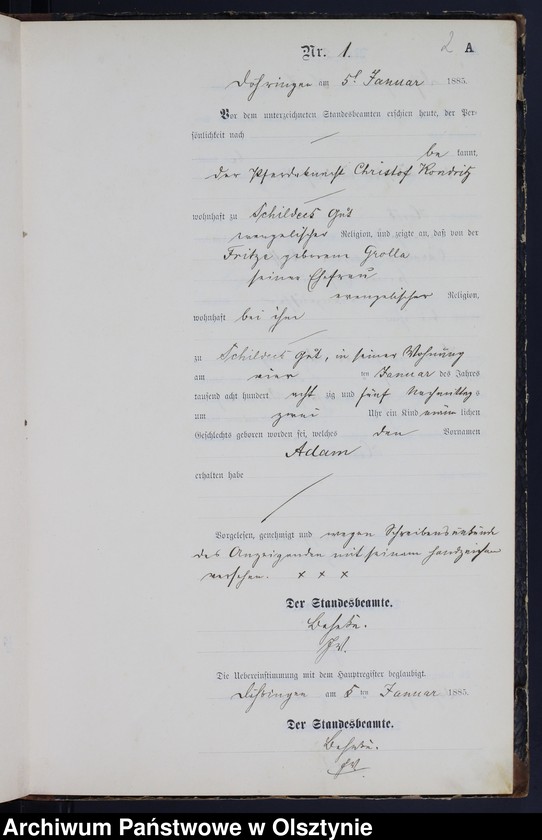 2 A
Nr. 1.
Döhringen am 5t Januar 1885.
Vor dem unterzeichneten Standesbeamten erschien heute, der Per-
sönlichkeit nach
be kannt,
der Pferdeknecht Christof Kondritz
wohnhaft zu Schildeck Gut
evangelischer Religion, und zeigte an, daß von der
Fritze geborene Grolla
seiner Ehefrau
evangelischer Religion,
wohnhaft bei ihm
zu Schildeck Gut, in seiner Wohnung
am vier ten Januar des Jahres
tausend acht hundert acht zig und fünf Nachmittag s
um zwei Uhr ein Kind männ lichen
Geschlechts geboren worden sei, welches den Vornamen
Adam
erhalten habe
Vorgelesen, genehmigt und wegen Schreibensunkunde
des Anzeigenden mit seinem Handzeichen
versehen. x x x
Der Standesbeamte.
Die Uebereinstimmung mit dem Hauptregister beglaubigt.
Döhringen am 5 ten Januar 1885.
Der Standesbeamte.
Archiwum Państwowe w Olsztynie